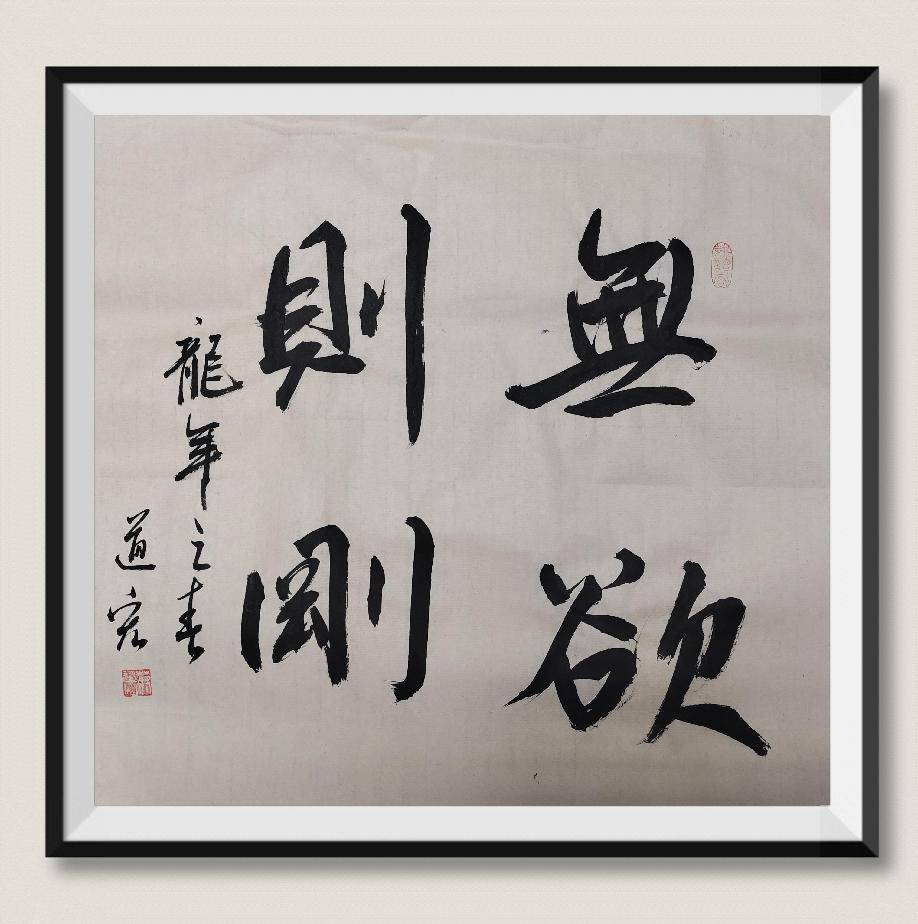 無欲
則剛
龍年之春
道宏